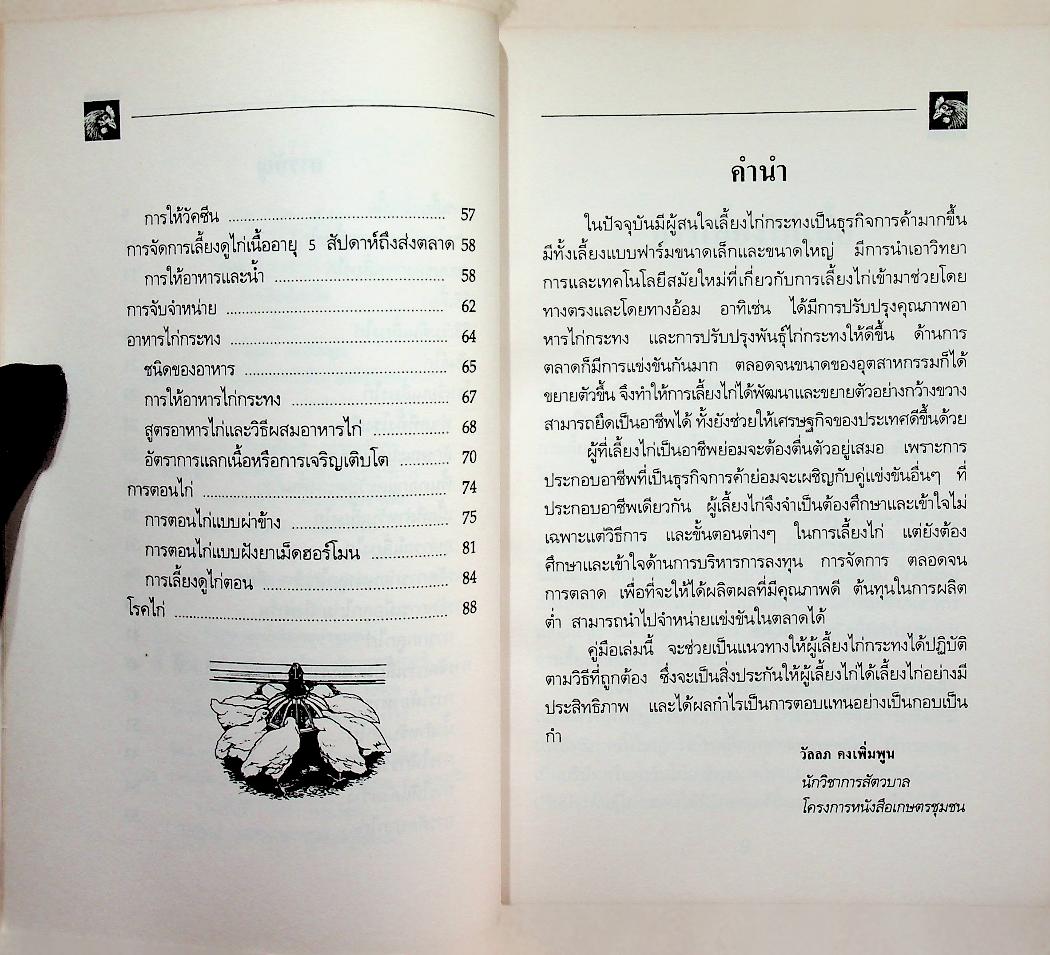 การให้วัคซีน ........ 57
การจัดการเลี้ยงดูไก่เนื้ออายุ 5 สัปดาห์ถึงส่งตลาด 58
การให้อาหารและน้ำ ........ 58
การจับจำหน่าย ........ 62
อาหารไก่กระทง ........ 64
ชนิดของอาหาร ........ 65
การให้อาหารไก่กระทง ........ 67
สูตรอาหารไก่และวิธีผสมอาหารไก่ ........ 68
อัตราการแลกเนื้อหรือการเจริญเติบโต ........ 70
การตอนไก่ ........ 74
การตอนไก่แบบผ่าข้าง ........ 75
การตอนไก่แบบฝังยาเม็ดฮอร์โมน ........ 81
การเลี้ยงดูไก่ตอน ........ 84
โรคไก่ ........ 88
คำนำ
ในปัจจุบันมีผู้สนใจเลี้ยงไก่กระทงเป็นธุรกิจการค้ามากขึ้น
มีทั้งเลี้ยงแบบฟาร์มขนาดเล็กและขนาดใหญ่ มีการนำเอาวิทยา
การและเทคโนโลยีสมัยใหม่ที่เกี่ยวกับการเลี้ยงไก่เข้ามาช่วยโดย
ทางตรงและโดยทางอ้อม อาทิเช่น ได้มีการปรับปรุงคุณภาพอา
หารไก่กระทง และการปรับปรุงพันธุ์ไก่กระทงให้ดีขึ้น ด้านการ
ตลาดก็มีการแข่งขันกันมาก ตลอดจนขนาดของอุตสาหกรรมก็ได้
ขยายตัวขึ้น จึงทำให้การเลี้ยงไก่ได้พัฒนาและขยายตัวอย่างกว้างขวาง
สามารถยึดเป็นอาชีพได้ ทั้งยังช่วยให้เศรษฐกิจของประเทศดีขึ้นด้วย
ผู้ที่เลี้ยงไก่เป็นอาชีพย่อมจะต้องตื่นตัวอยู่เสมอ เพราะการ
ประกอบอาชีพที่เป็นธุรกิจการค้าย่อมจะเผชิญกับคู่แข่งขันอื่นๆ ที่
ประกอบอาชีพเดียวกัน ผู้เลี้ยงไก่จึงจำเป็นต้องศึกษาและเข้าใจไม่
เฉพาะแต่วิธีการ และขั้นตอนต่างๆ ในการเลี้ยงไก่ แต่ยังต้อง
ศึกษาและเข้าใจด้านการบริหารการลงทุน การจัดการ ตลอดจน
การตลาด เพื่อที่จะให้ได้ผลิตผลที่มีคุณภาพดี ต้นทุนในการผลิต
ต่ำ สามารถนำไปจำหน่ายแข่งขันในตลาดได้
คู่มือเล่มนี้ จะช่วยเป็นแนวทางให้ผู้เลี้ยงไก่กระทงได้ปฏิบัติ
ตามวิธีที่ถูกต้อง ซึ่งจะเป็นสิ่งประกันให้ผู้เลี้ยงไก่ได้เลี้ยงไก่อย่างมี
ประสิทธิภาพ และได้ผลกำไรเป็นการตอบแทนอย่างเป็นกอบเป็น
กำ
วัลลภ คงเพิ่มพูน
นักวิชาการสัตวบาล
โครงการหนังสือเกษตรชุมชน